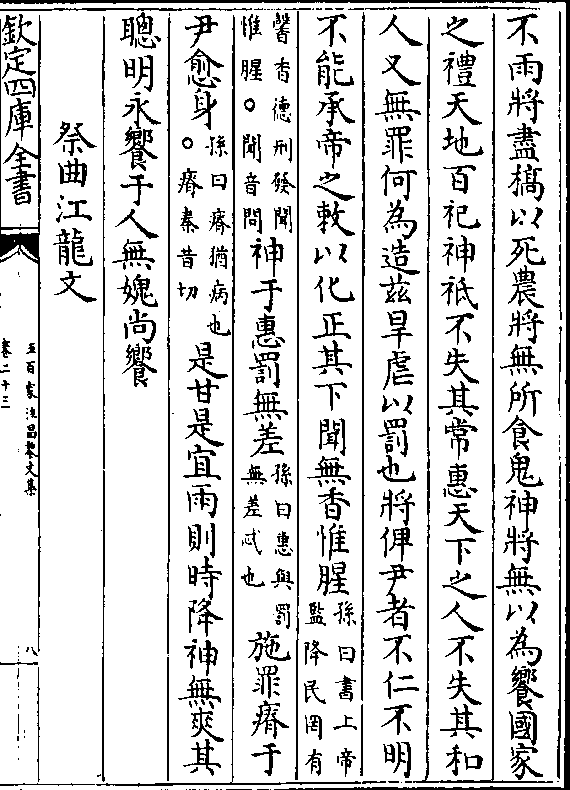 不雨將盡槁以死農將無所食鬼神將無以為饗國家
之禮天地百祀神祇不失其常惠天下之人不失其和
人又無罪何為造茲旱虐以罰也將俾尹者不仁不明
不能承帝之敕以化正其下聞無香惟腥孫曰書上帝監降民罔有
馨香德刑發聞惟腥。聞音問神于惠罰無差孫曰惠與罰無差忒也施罪瘠于
尹愈身孫曰瘠猶病也。瘠秦昔切是甘是宜雨則時降神無爽其
聰明永饗于人無媿尚饗
祭曲江龍文
欽定四庫全書
五百家注昌黎文集
卷二十三
八